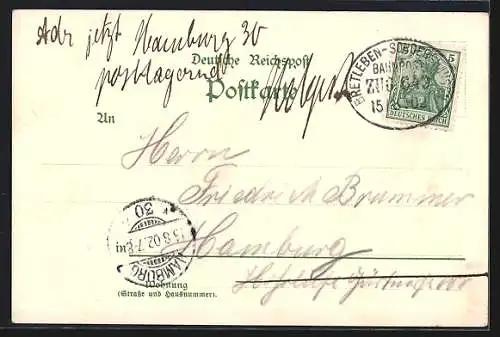 Adr jetzt Hamburg 30
postlagernd
Deutsche Reichspost
Postkarte
BRETLEBEN-
BAHNPOST
ZUG
15
5
DEUTSCHES REICH
An
Herrn
Friedrich Brummer
in Hamburg
HAMBURG
15.8.02.7-8
* 30
Wohnung
(Straße und Hausnummer)